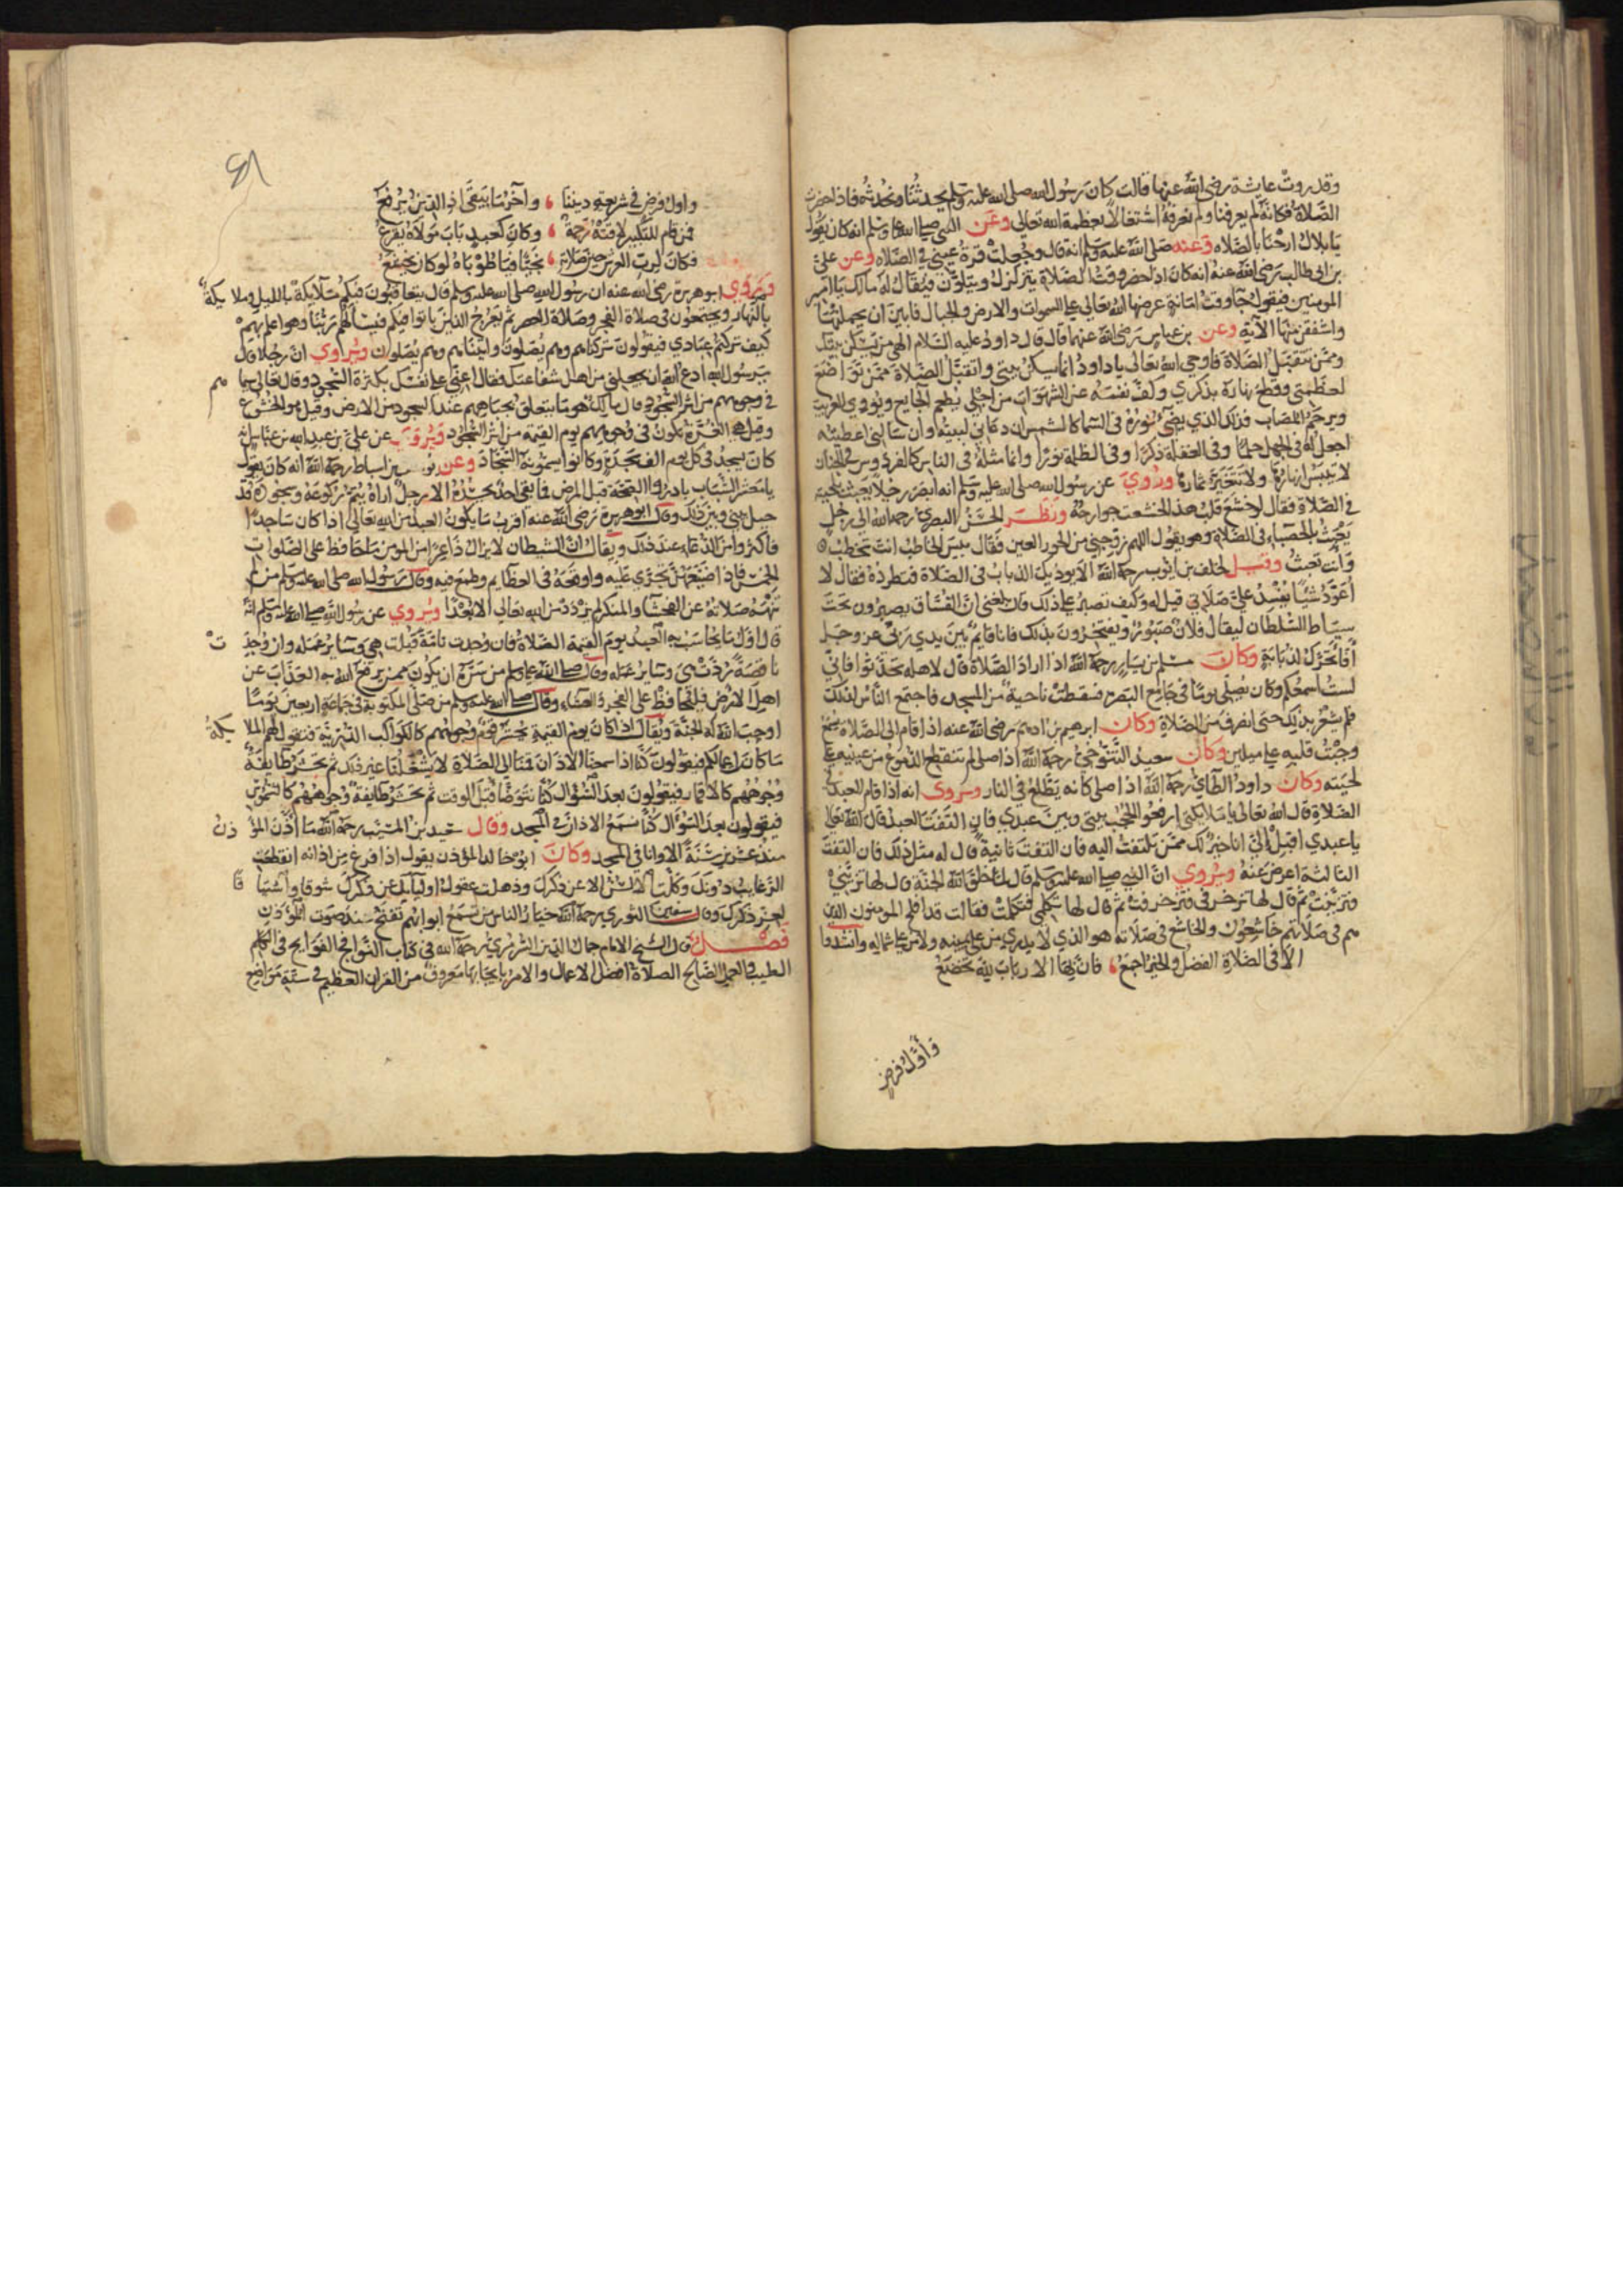 وقد روت عايشة رضى الله عنها قالت كان رسول الله صلى الله عليه وسلم يحدثنا ونحدثه فاذا حضرت
الصلاة فكانه لم يعرفنا ولم نعرفه اشتغالا بعظمة الله تعالى وعن النبي صلى الله عليه وسلم انه كان يقول
يا بلال ارحنا بالصلاه وعنه صلى الله عليه وسلم انه قال وجعلت قرة عيني في الصلاه وعن علي
بن ابى طالب رضى الله عنه انه كان اذا حضر وقت الصلاة يتزلزل ويتلون فيقال له مالك يا امير
المومنين فيقول جا وقت امانة عرضها الله تعالى على السموات والارض والجبال فابين ان يحملنها
واشفقن منها الآية وعن بن عباس رضى الله عنهما قال قال داود عليه السلام الهي من يسكن بيتك
وممن تتقبل الصلاة فاوحى الله تعالى يا داود انما يسكن بيتى واتقبل الصلاة ممن تواضع
لعظمتي وقطع نهاره بذكري وكف نفسه عن الشهوات من اجلي يطعم الجايع ويووي الغريب
ويرحم المصاب فذلك الذي يضئ نوره فى السما كالشمس ان دعاني لبيته وان سالنى اعطيته
اجعل له في الجهل حلما وفى الغفلة ذكرا وفى الظلمة نورا وانما مثله فى الناس كالفردوس في الجنان
لا تيبس انهارها ولا تتغير ثمارها وروي عن رسول الله صلى الله عليه وسلم انه ابصر رجلا يعبث بلحيته
في الصلاة فقال لو خشع قلب هذا لخشعت جوارحه ونظر الحسن البصري رحمه الله الى رجل
يعبث بالحصباء فى الصلاة وهو يقول اللهم زوجني من الحور العين فقال بيس الخاطب انت تخطب
وانت تعبث وقيل لخلف بن ايوب رحمه الله الا يوذيك الذباب فى الصلاة فتطرده فقال لا
أعود شيا يفسد علي صلاتي قيل له وكيف تصبر على ذلك قال بلغنى ان الفساق يصبرون تحت
سياط السلطان ليقال فلان صبور ويفتخرون بذلك فانا قايم بين يدي ربى عز وجل
أفأتحرك لذبابة وكان مسلم بن يسار رحمه الله اذا اراد الصلاة قال لاهله تحدثوا فاني
لست اسمعكم وكان يصلى يوما فى جامع البصرة فسقطت ناحية من المسجد فاجتمع الناس لذلك
فلم يشعر بذلك حتى انصرف من الصلاة وكان ابرهيم بن ادهم رضى الله عنه اذا قام الى الصلاة يسمع
وجبت قلبه على ميلين وكان سعيد التنوخي رحمه الله اذا صلى لم تنقطع الدموع من عينيه على
لحيته وكان داود الطاي رحمه الله اذا صلى كانه يطلع فى النار وروى انه اذا قام العبد في
الصلاة قال الله تعالى يا ملايكتى ارفعوا الحجب بيني وبين عبدي فان التفت العبد قال الله تعالى
يا عبدي اقبل إلي انا خير لك ممن تلتفت اليه فان التفت ثانية قال له مثل ذلك فان التفت
الثالثة اعرض عنه ويروي ان النبي صلى الله عليه وسلم قال لما خلق الله الجنة قال لها تزيني
فتزينت ثم قال لها تزخرفى فتزخرفت ثم قال لها تكلمى فتكلمت فقالت قد افلح المومنون الذين
هم فى صلاتهم خاشعون والخاشع فى صلاته هو الذي لا يدري من على يمينه ولا من على شماله وانشدوا
الا فى الصلاة الفضل والخير اجمع، فان بها الارباب لله تخضع
وأول فرض
واول فرض في شريعة ديننا، وآخر ما يبقى اذا الدين يرفع
فمن قام للتكبير لاقته رحمة، وكان كعبد باب مولاه يقرع
فكان لرب العرش حين صلاته، نجيا فيا طوباه لو كان يخشع
ويروي ابو هريرة رضى الله عنه ان رسول الله صلى الله عليه وسلم قال يتعاقبون فيكم ملايكة بالليل وملايكة
بالنهار ويجتمعون فى صلاة الفجر وصلاة العصر ثم يعرج الذين باتوا فيكم فيسالهم ربنا وهو اعلم بهم
كيف تركتم عبادي فيقولون تركناهم وهم يصلون واتيناهم وهم يصلون ويروي ان رجلا قال
يرسول الله ادع الله ان يجعلنى من اهل شفاعتك فقال اعني على نفسك بكثرة السجود وقال تعالى سيماهم
في وجوههم من اثر السجود قال مالك هو ما يتعلق بجباههم عند السجود من الارض وقيل هو الخشوع
وقيل هي الغرة تكون فى وجوههم يوم القيمة من اثر السجود ويروى عن علي بن عبد الله بن عباس انه
كان يسجد فى كل يوم الف سجدة وكانوا يسمونه السجاد وعن يوسف بن اسباط رحمه الله انه كان يقول
يا معشر الشباب بادروا بالصحة قبل المرض فما بقى احد احسده الا رجل اراه يتم ركوعه وسجوده قد
حيل بينى وبين ذلك وقال ابو هريرة رضى الله عنه اقرب ما يكون العبد من الله تعالى اذا كان ساجدا
فاكثروا من الدعاء عند ذلك ويقال ان الشيطان لا يزال ذاعرا من المومن ما حافظ على الصلوات
الخمس فاذا ضيعهن تجرى عليه واوقعه فى العظايم وطمع فيه وقال رسول الله صلى الله عليه وسلم من لم
تنهه صلاته عن الفحشا والمنكر لم يزدد من الله تعالى الا بعدا ويروي عن رسول الله صلى الله عليه وسلم انه
قال اول ما يحاسب به العبد يوم القيمة الصلاة فان وجدت تامة قبلت هي وساير عمله وان وجدت
ناقصة ردت هي وساير عمله وقال صلى الله عليه وسلم من سره ان يكون ممن يرفع الله به العذاب عن
اهل الارض فليحافظ على الفجر والعشاء وقال صلى الله عليه وسلم من صلى المكتوبة فى جماعة اربعين يوما
اوجب الله له الجنة ويقال اذا كان يوم القيمة يحشر قوم وجوههم كالكواكب الدرية فتقول لهم الملايكة
ما كان اعمالكم فيقولون كنا اذا سمعنا الاذان قمنا الى الصلاة لا يشغلنا غير ذلك ثم تحشر طايفة
وجوههم كالاقمار فيقولون بعد السؤال كنا نتوضا قبل الوقت ثم تحشر طايفة وجوههم كالشموس
فيقولون بعد السؤال كنا نسمع الاذان في المسجد وقال سعيد بن المسيب رحمه الله ما أذن المؤذن
منذ عشرين سنة الا وانا فى المسجد وكان ابو مخالد المؤذن يقول اذا فرغ من اذانه انقطعت
الرغايب دونك وكلت الالسن الا عن ذكرك وذهلت عقول اوليايك عن فكرك شوقا واشتياقا
لعز ذكرك وقال سفين الثوري رحمه الله خيار الناس من تسمع ابوابهم تفتح عند صوت المؤذن
فصل قال الشيخ الامام جمال الدين الشرمري رحمه الله فى كتاب النوافح الفوايح فى الكلم
الطيب والعمل الصالح الصلاة افضل الاعمال والامر بايجابها معروف من القران العظيم فى ستة مواضع